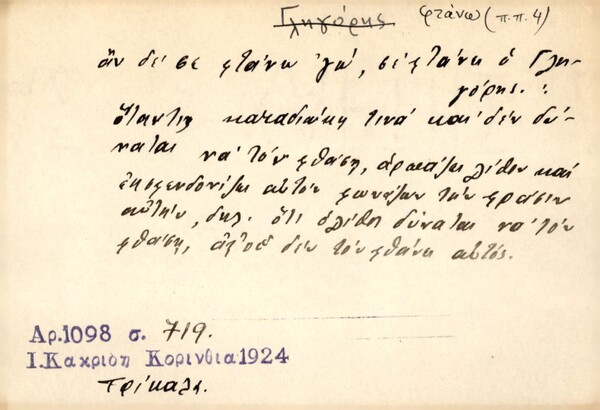 Γληγόρης φτάνω (π.π. 4)
ἂν δέ σε φτάνω 'γώ, σέ φτάνει ὁ Γλη-
γόρης. :
Ὅταν τις καταδιώκῃ τινά καί δέν δύ-
ναται νά τόν φθάσῃ, ἁρπάζει λίθον καί
ἐκσφενδονίζει αὐτόν φωνάζων τήν φράσιν
αὐτήν, δηλ. ὅτι ὁ λίθος δύναται νά τόν
φθάσῃ, ἀφοῦ δέν τόν φθάνει αὐτός.
Αρ. 1098 σ. 719.
Ι. Κακριδη Κορινθια 1924
Τρίκαλα.